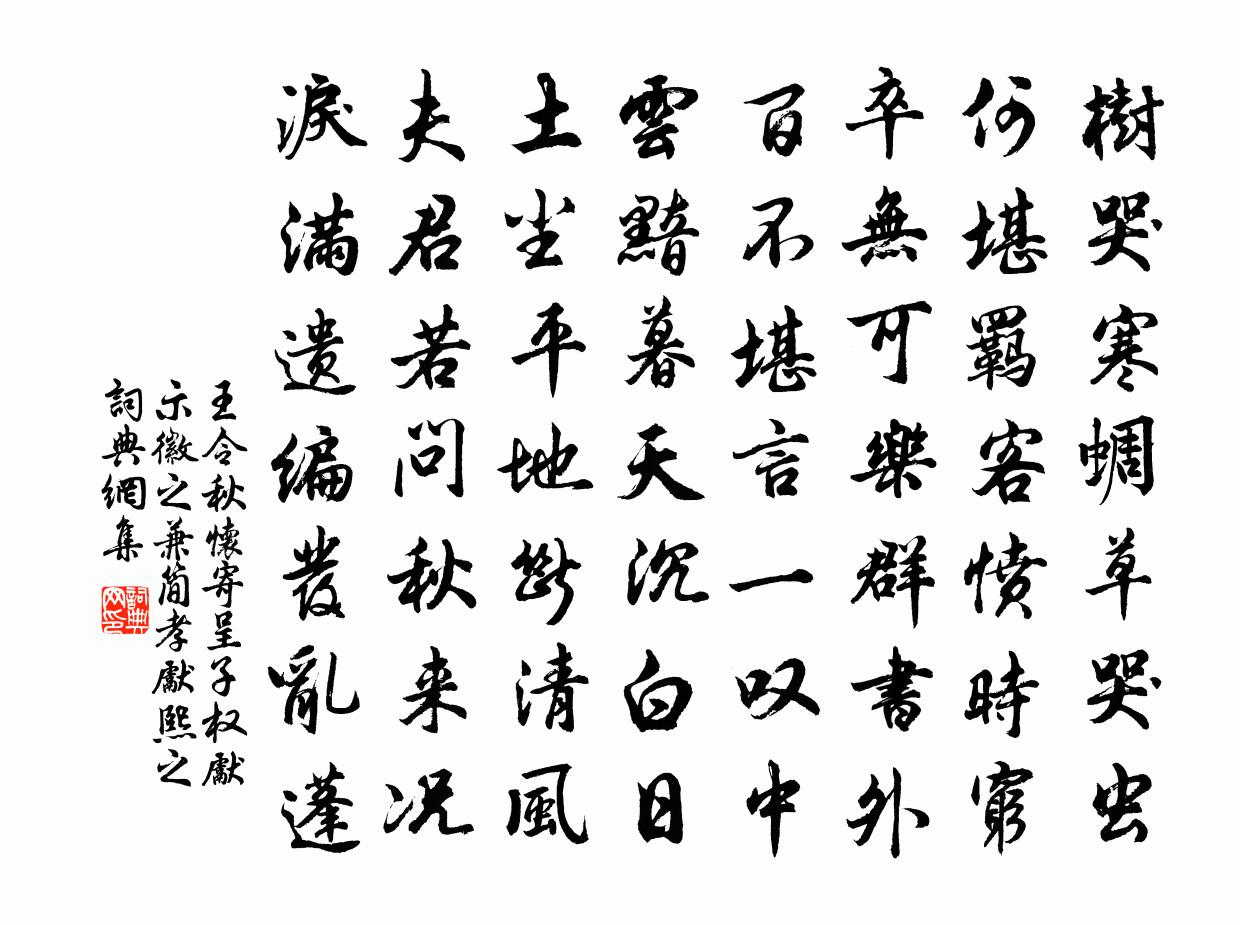 樹哭寒蜩草哭虫
何堪羈客憤時窮
卒無可樂群書外
百不堪言一叹中
雲黯暮天沉白日
土坐平地斷清風
夫君若问秋来况
淚滿遗编發亂蓬
王令秋懷寄呈子权獻
示徽之兼简孝獻熙之
詞典網集
詞典网印